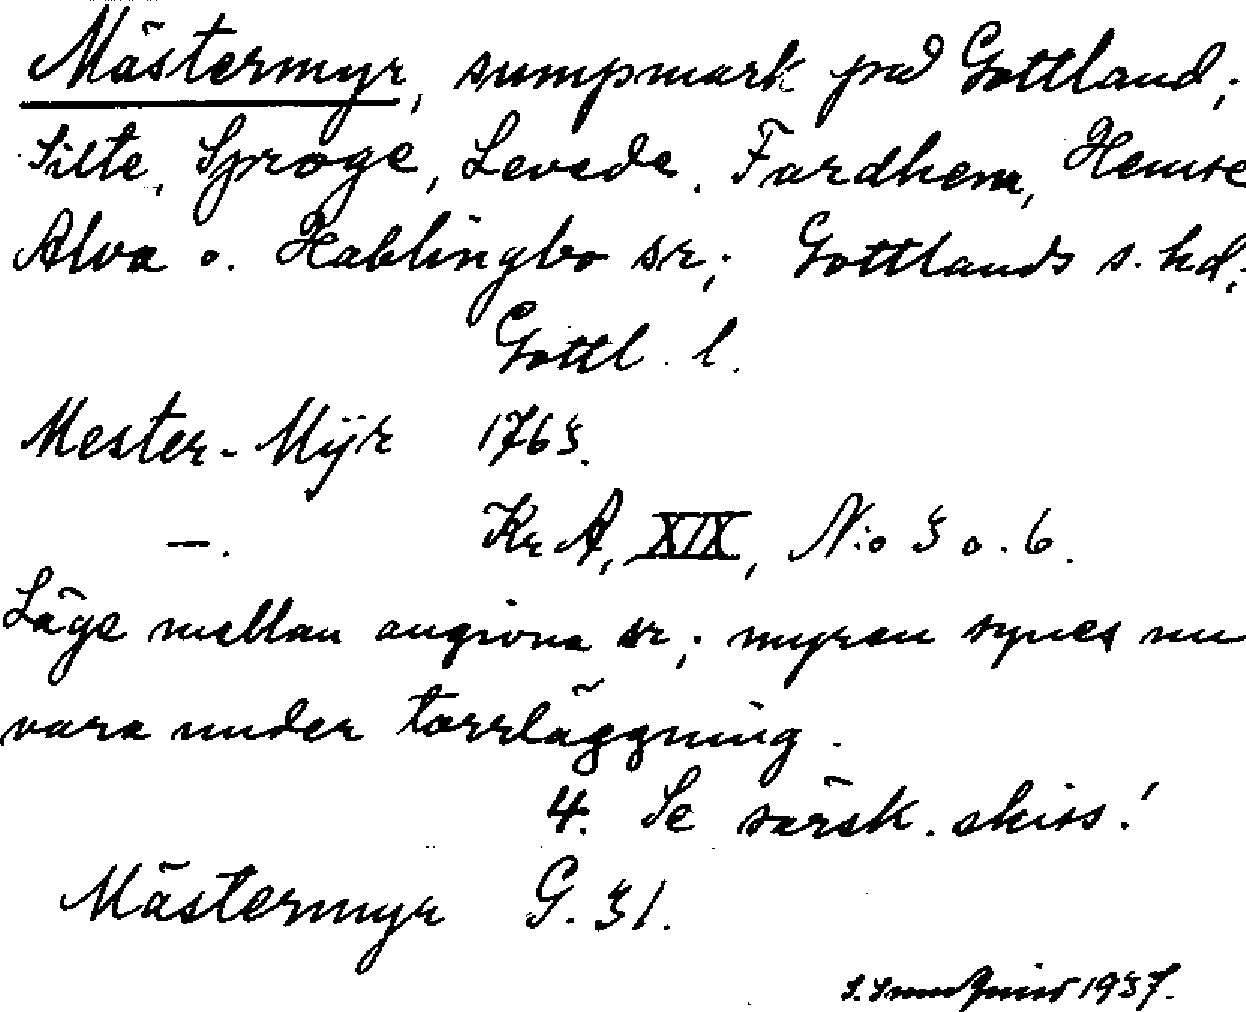 Mästermyr, sumpmark på Gottland;
Silte, Sproge, Levede, Fardhem, Hemse
Alva o. Hablingbo sr; Gottlands s. hd;
Gottl. l.
Mester-Mÿr 1763.
—. Kr A, XIX, N:o 3 o. 6.
Läge mellan angivna sr; myren synes nu
vara under torrläggning.
4. Se särsk. skiss!
Mästermyr G. 31.
1937.